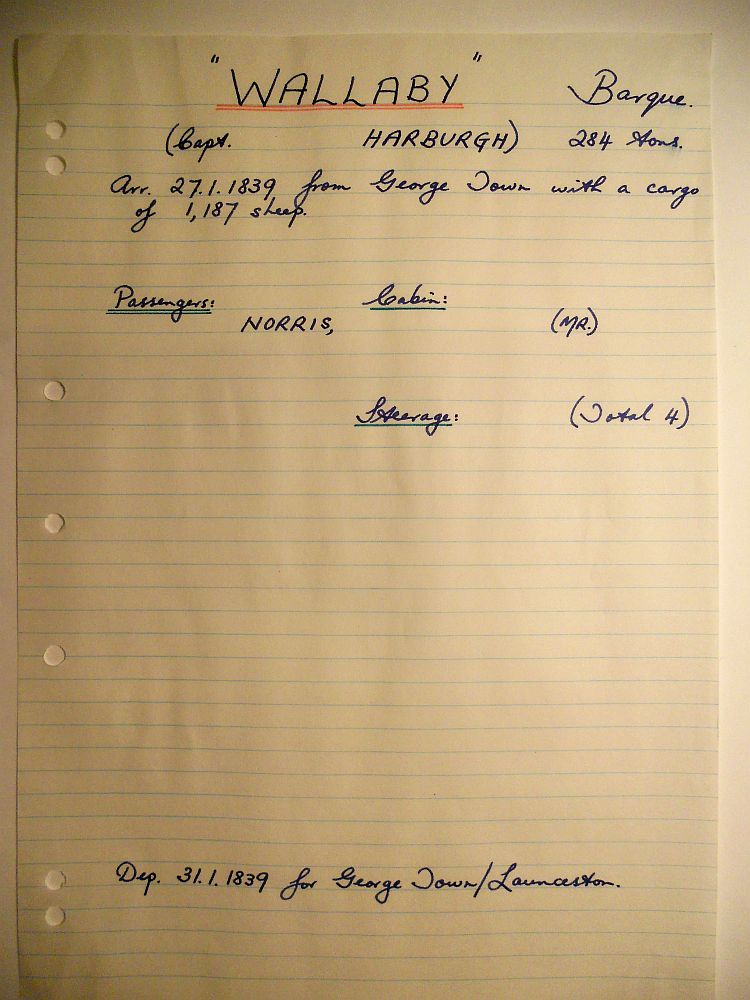 "WALLABY" Barque.
(Capt. HARBURGH) 284 tons.
Arr. 27.1.1839 from George Town with a cargo
of 1,187 sheep.
Passengers: Cabin:
NORRIS, (MR.)
Steerage: (Total 4)
Dep. 31.1.1839 for George Town/Launceston.